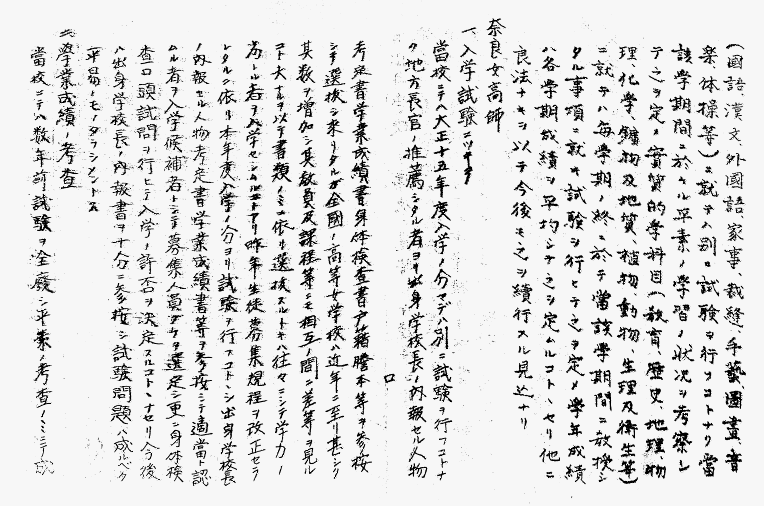 (國語、漢文、外國語、家事、裁縫、手藝、圖畫、音
樂体操等)ニ就テハ別ニ試驗ヲ行フコトナク當
該學期間ニ於ケル平素ノ學習ノ狀況ヲ考察シ
テ之ヲ定メ實質的學科目(敎育、歷史、地理、物
理、化學、鑛物及地質、植物、動物、生理及衞生等)
ニ就テハ每學期ノ終ニ於テ當該學期間ニ敎授シ
タル事項ニ就キ試驗ヲ行ヒテ之ヲ定メ學年成績
ハ各學期成績ヲ平均シテ之ヲ定ムルコトヽセリ他ニ
良法ナキヲ以テ今後モ之ヲ續行スル見込ナリ
奈良女高師
一、入學試驗ニツキテ
當校ニテハ大正十五年度入學ノ分マデハ別ニ試驗ヲ行フコトナ
ク地方長官ノ推薦シタル者ヨリ出身學校長ノ內報セル人物
考定書學業成績書身体檢查書戶籍謄本等ヲ參桉
シテ選拔シ來リタルガ全國ノ高等女學校ハ近年ニ至リ甚シク
其數ヲ增加シ其敎員及課程等ニモ相互ノ間ニ差等ヲ見ル
コト大ナルヲ以テ書類ノミニ依リ選拔スルトキハ往々ニシテ學力ノ
劣レル者ヲ入學セシムルコトアリ昨年生徒募集規程ヲ改正セラ
レタルニ依リ本年度入學ノ分ヨリ試驗ヲ行フコトヽシ出身學校長
ノ內報セル人物考定書學業成績書等ヲ參桉シテ適當ト認
ムル者ヲ入學候補者トシテ募集人員ダケヲ選定シ更ニ身体檢
查口頭試問ヲ行ヒテ入學ノ許否ヲ決定スルコトヽナセリ今後
ハ出身學校長ノ內報書ヲ十分ニ參桉シ試驗問題ハ成ルベク
平易ノモノタラシメントス
二、學業成績ノ考查
當校ニテハ數年前試驗ヲ全廢シ平素ノ考查ノミニテ成